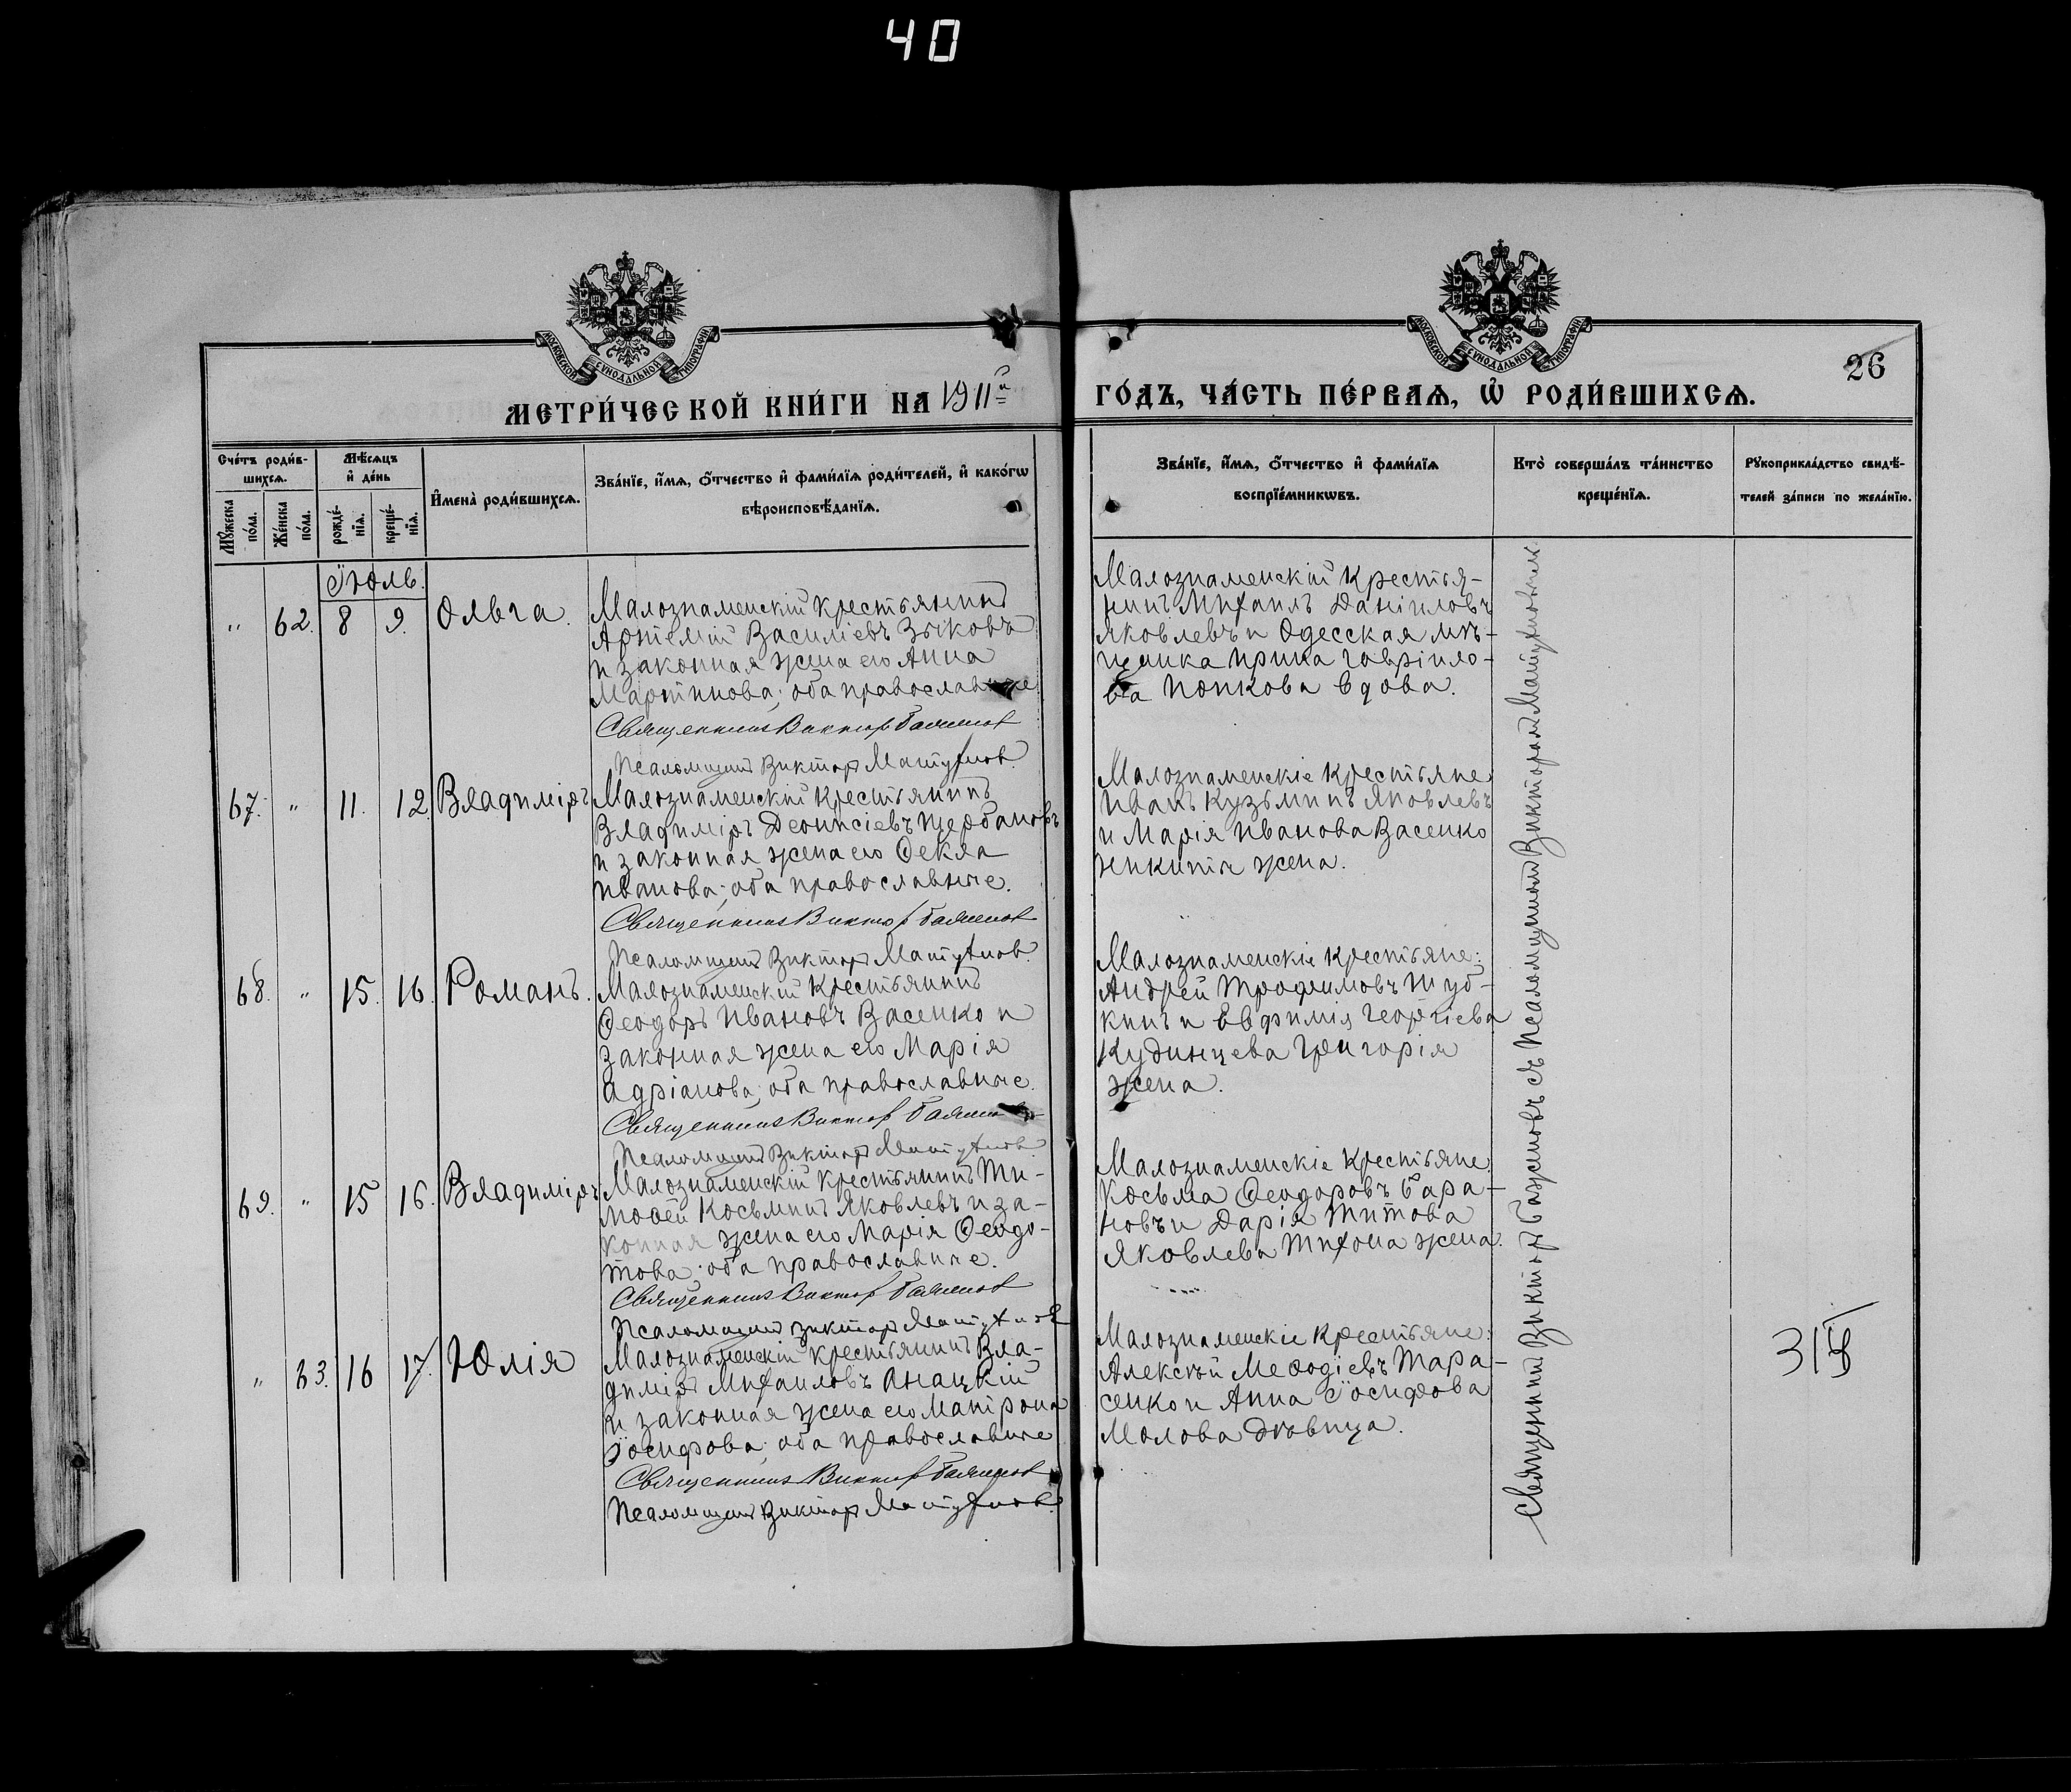 40
МОСКОВСКОЙ СѴНОДАЛЬНОЙ ТИПОГРАФІИ
МОСКОВСКОЙ СѴНОДАЛЬНОЙ ТИПОГРАФІИ
26
МЕТРИ́ЧЕСКОЙ КНИ́ГИ НА 1911й
ГО́ДЪ, ЧА́СТЬ ПЕ́РВАѦ, Ѿ РОДИ́ВШИХСѦ.
Сче́тъ роди́в-
шихсѧ.
Мꙋжеска по́ла.
Же́нска по́ла.
Мѣ́сѧцъ
и҆ де́нь
рожде́-
нїѧ.
креще́-
нїѧ.
И҆мена̀ роди́вшихсѧ.
Зва́нїе, и҆́мѧ, ѻ҆́тчество и҆ фами́лїѧ роди́телей, и҆ како́гѡ
вѣроисповѣ́данїѧ.
Зва́нїе, и҆́мѧ, ѻ҆́тчество и҆ фами́лїѧ
воспрїе́мникѡвъ.
Кто̀ соверша́лъ та́инство
креще́нїѧ.
Рꙋкоприкла́дство свидѣ́-
телей за́писи по жела́нїю.
Іюль.
" 62. 8 9. Ольга.
Малознаменскій крестьянинъ
Артемій Василіевъ Зыковъ
и законная жена его Анна
Мартинова; оба православные
Священникъ Виктор Баженов
Псаломщикъ Викторъ Матухнов.
Малознаменскій крестья-
нинъ Михаилъ Даніиловъ
Яковлевъ и Одесская мѣ-
щанка Ирина Гавріило-
ва Попкова вдова.
67. " 11. 12. Владиміръ
Малознаменскій крестьянинъ
Владиміръ Деонисіевъ Щербановъ
и законная жена его Ѳекла
Иванова; оба православные.
Священникъ Виктор Баженов
Псаломщикъ Викторъ Матухнов.
Малознаменскіе крестьяне:
Иванъ Кузьминъ Яковлевъ
и Марія Иванова Васенко
Никиты жена.
68. " 15. 16. Романъ.
Малознаменскій крестьянинъ
Ѳеодоръ Ивановъ Васенко и
законная жена его Марія
Адріанова; оба православные.
Священникъ Виктор Баженов
Псаломщикъ Викторъ Матухнов.
Малознаменскіе крестьяне:
Андрей Трофимовъ Шуб-
кинъ и Евфимія Георгіева
Кудинцева Григорія
жена.
69. " 15 16. Владиміръ
Малознаменскій крестьянинъ Ти-
моѳей Косьминъ Яковлевъ и за-
конная жена его Марія Ѳеодо-
това; оба православные.
Священникъ Виктор Баженов
Псаломщикъ Викторъ Матухнов
Малознаменскіе крестьяне
Косьма Ѳеодоровъ Бара-
новъ и Дарія Титова
Яковлева Тихона жена.
" 63. 16 17. Юлія
Малознаменскій крестьянинъ Вла-
диміръ Михаиловъ Анацкій
и законная жена его Матрона
Іосифова; оба православные
Священникъ Виктор Баженов
Псаломщикъ Викторъ Матухнов.
Малознаменскіе крестьяне:
Алексѣй Меѳодіевъ Тара-
сенко и Анна Іосифова
Молова дѣвица.
Священникъ Викторъ Баженовъ съ Псаломщикомъ Викторомъ Матухновымъ